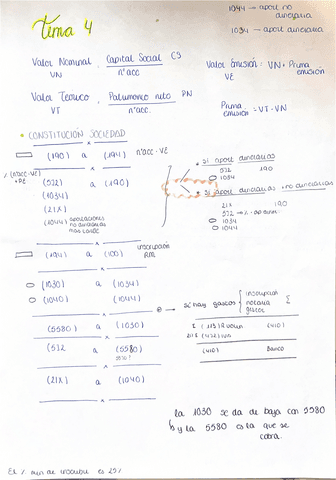 1044 → aport no
dineraria
1034 → aport dineraria
Tema 4
Valor Nominal = Capital Social CS
VN nºacc.
Valor Emisión = VN + Prima
VE emisión
Valor Teórico = Patrimonio neto PN
VT nºacc.
Prima
emisión = VT - VN
* CONSTITUCIÓN SOCIEDAD
(190) a (194) nºacc · VE
x
(nºacc · VE)
(572) a (190)
(1034)
(21X)
(1044) aportaciones
no dinerarias
más tarde
* si aport dinerarias
572 190
1034
* si aport dinerarias + no dinerarias
21X 190
572
1034
1044
x
(194) a (100) inscripción
RM
x
(1030) a (1034)
(1040) (1044)
x
(5580) a (1030)
si hay gastos
inscripción
notaría
(113) (410)
(472)
x
(572 a (5580)
(410) Banco
x
(21X) a (1040)
la 1030 se da de baja con 5580
y la 5580 es la que se
cobra.
El % min de inscribir es 25%